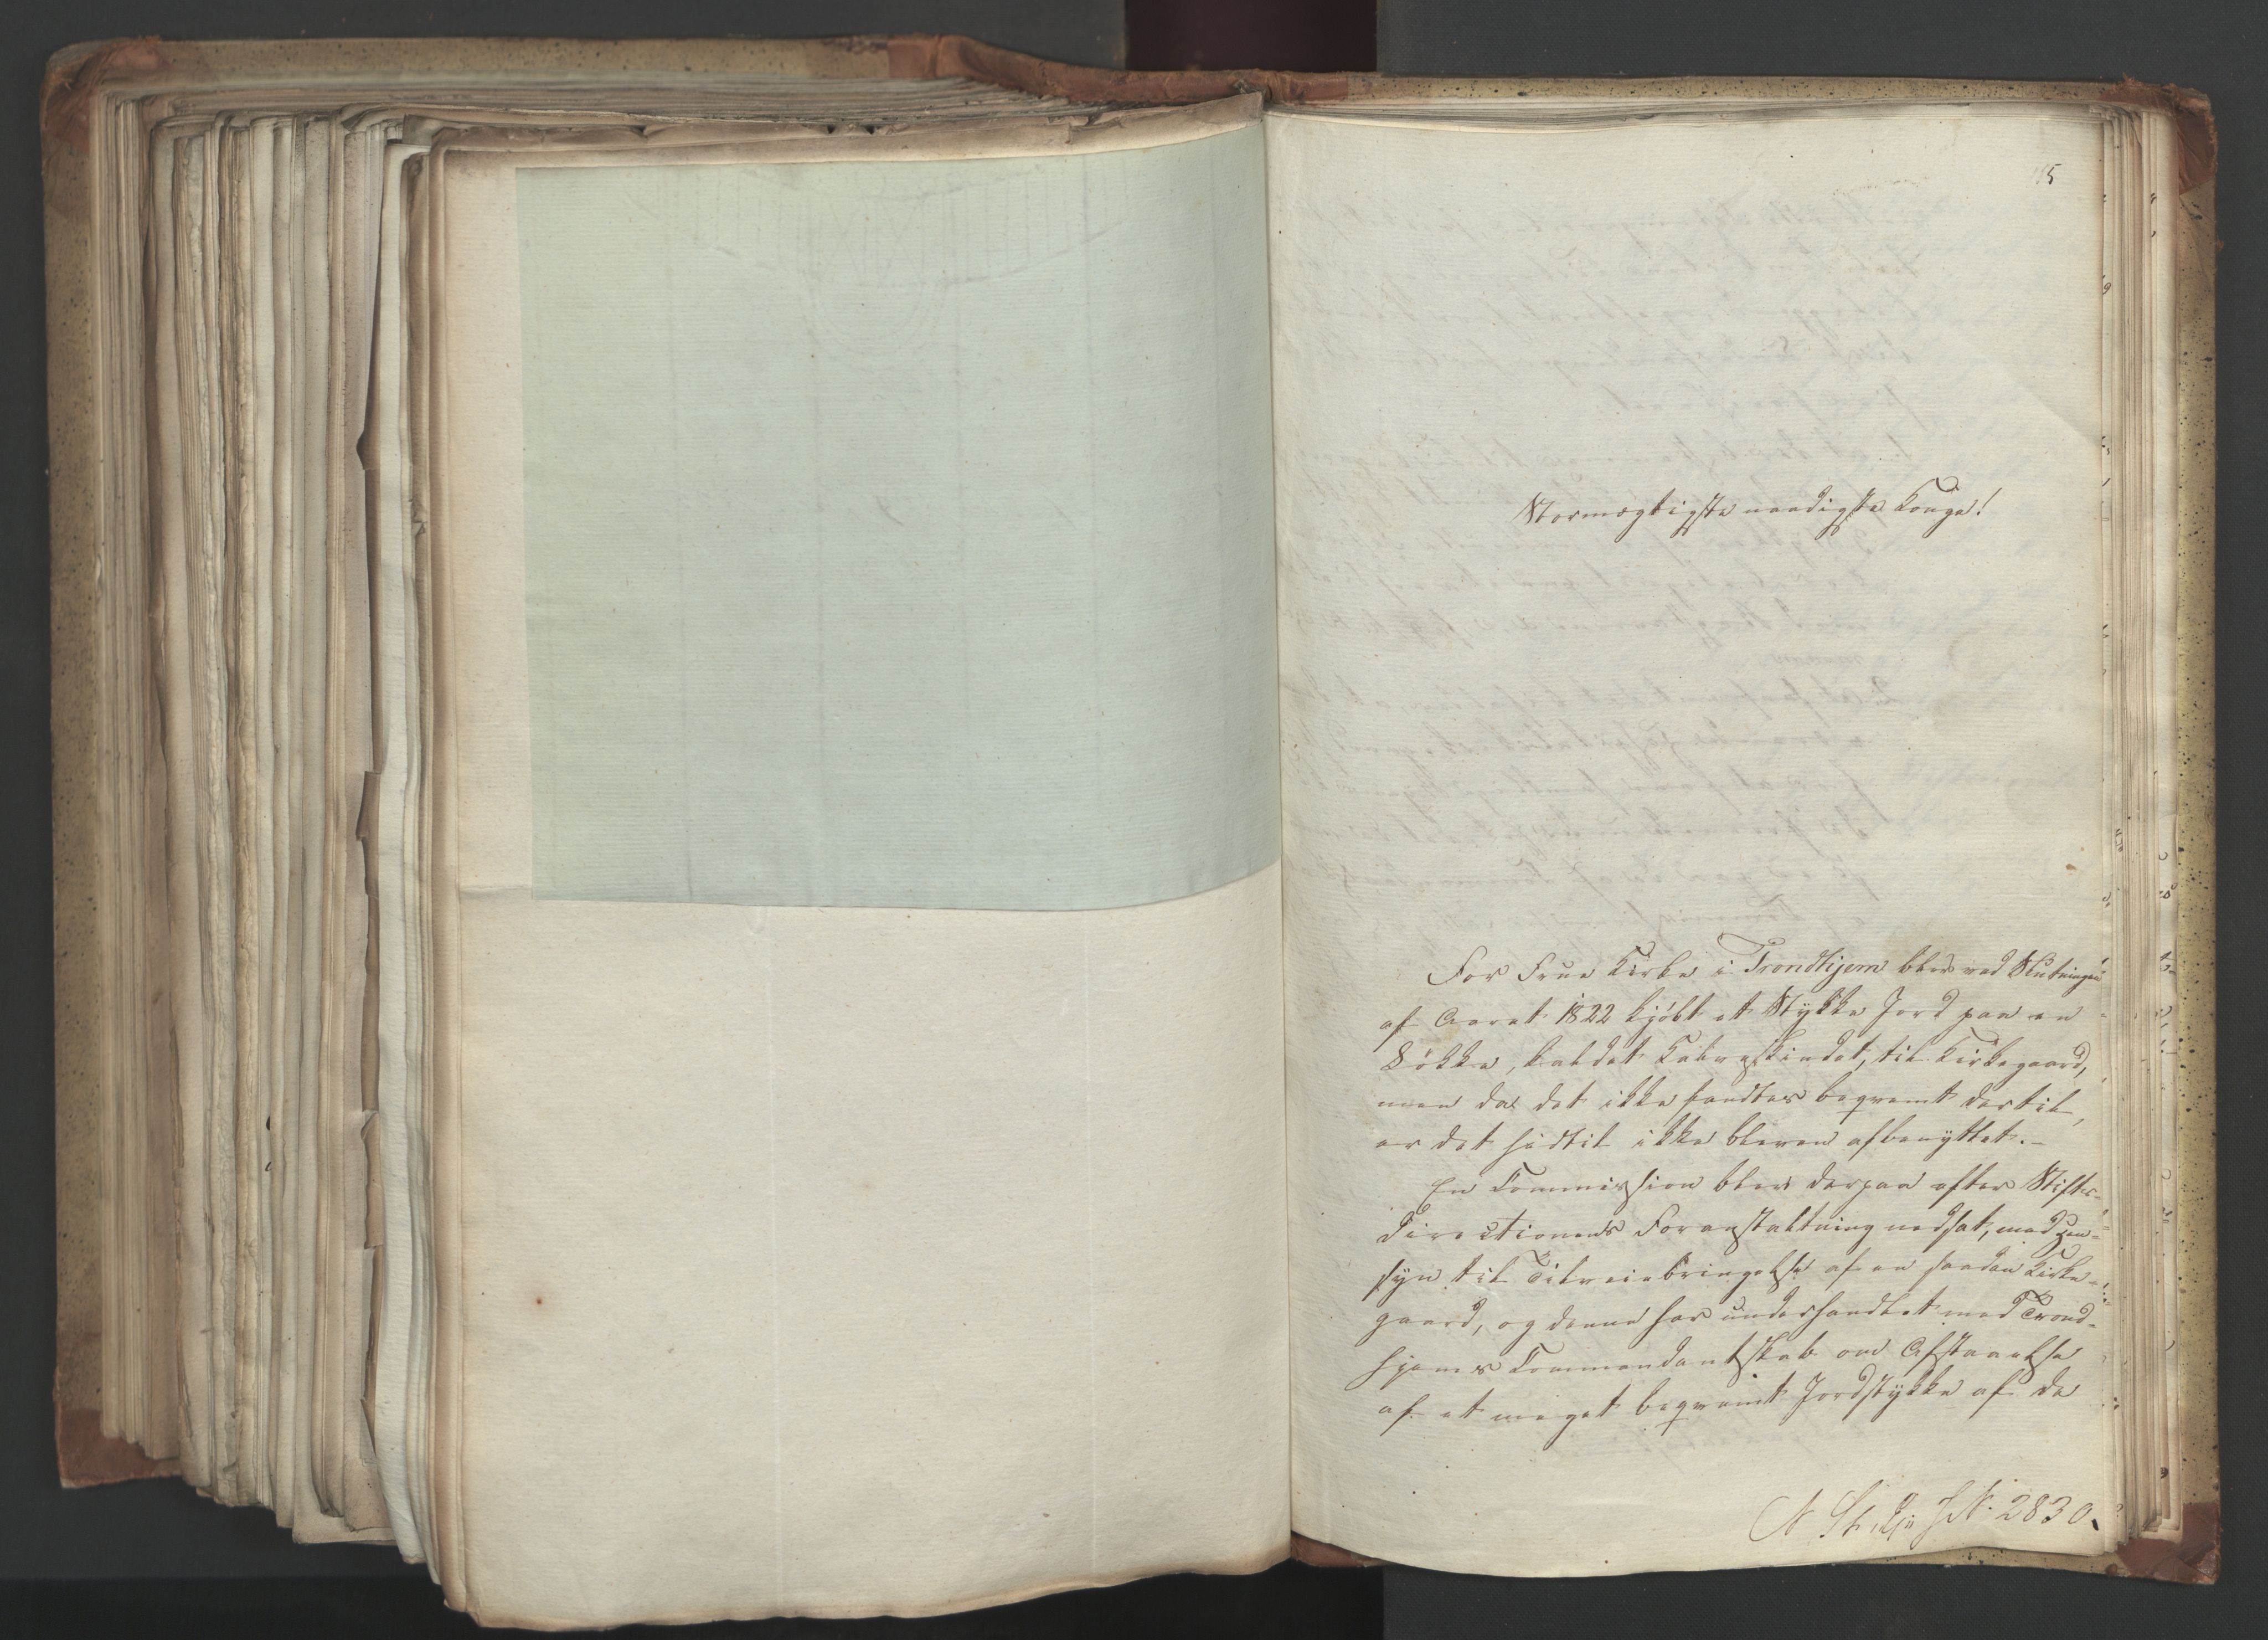 Stormægtigste naadigste Konge!
For Frue Kirke i Trondhjem blev ved Slutningen
af Aaret 1822 kjöbt et Stykke Jord paa en
Lökke, kaldet Kalveskindet, til Kirkegaard,
men da det ikke fandtes beqvemt dertil,
er det hidtil ikke bleven afbenyttet.-
En Commission blev derpaa efter Stifts-
directionens Foranstaltning nedsat, med Hen-
syn til Tilveiebringelse af en saadan Kirke-
gaard, og denne har underhandlet med Trond-
hjems Commendantskab om Afstaaelse
af et meget beqvemt Jordstykke af de
N. St. J. N. 2830.